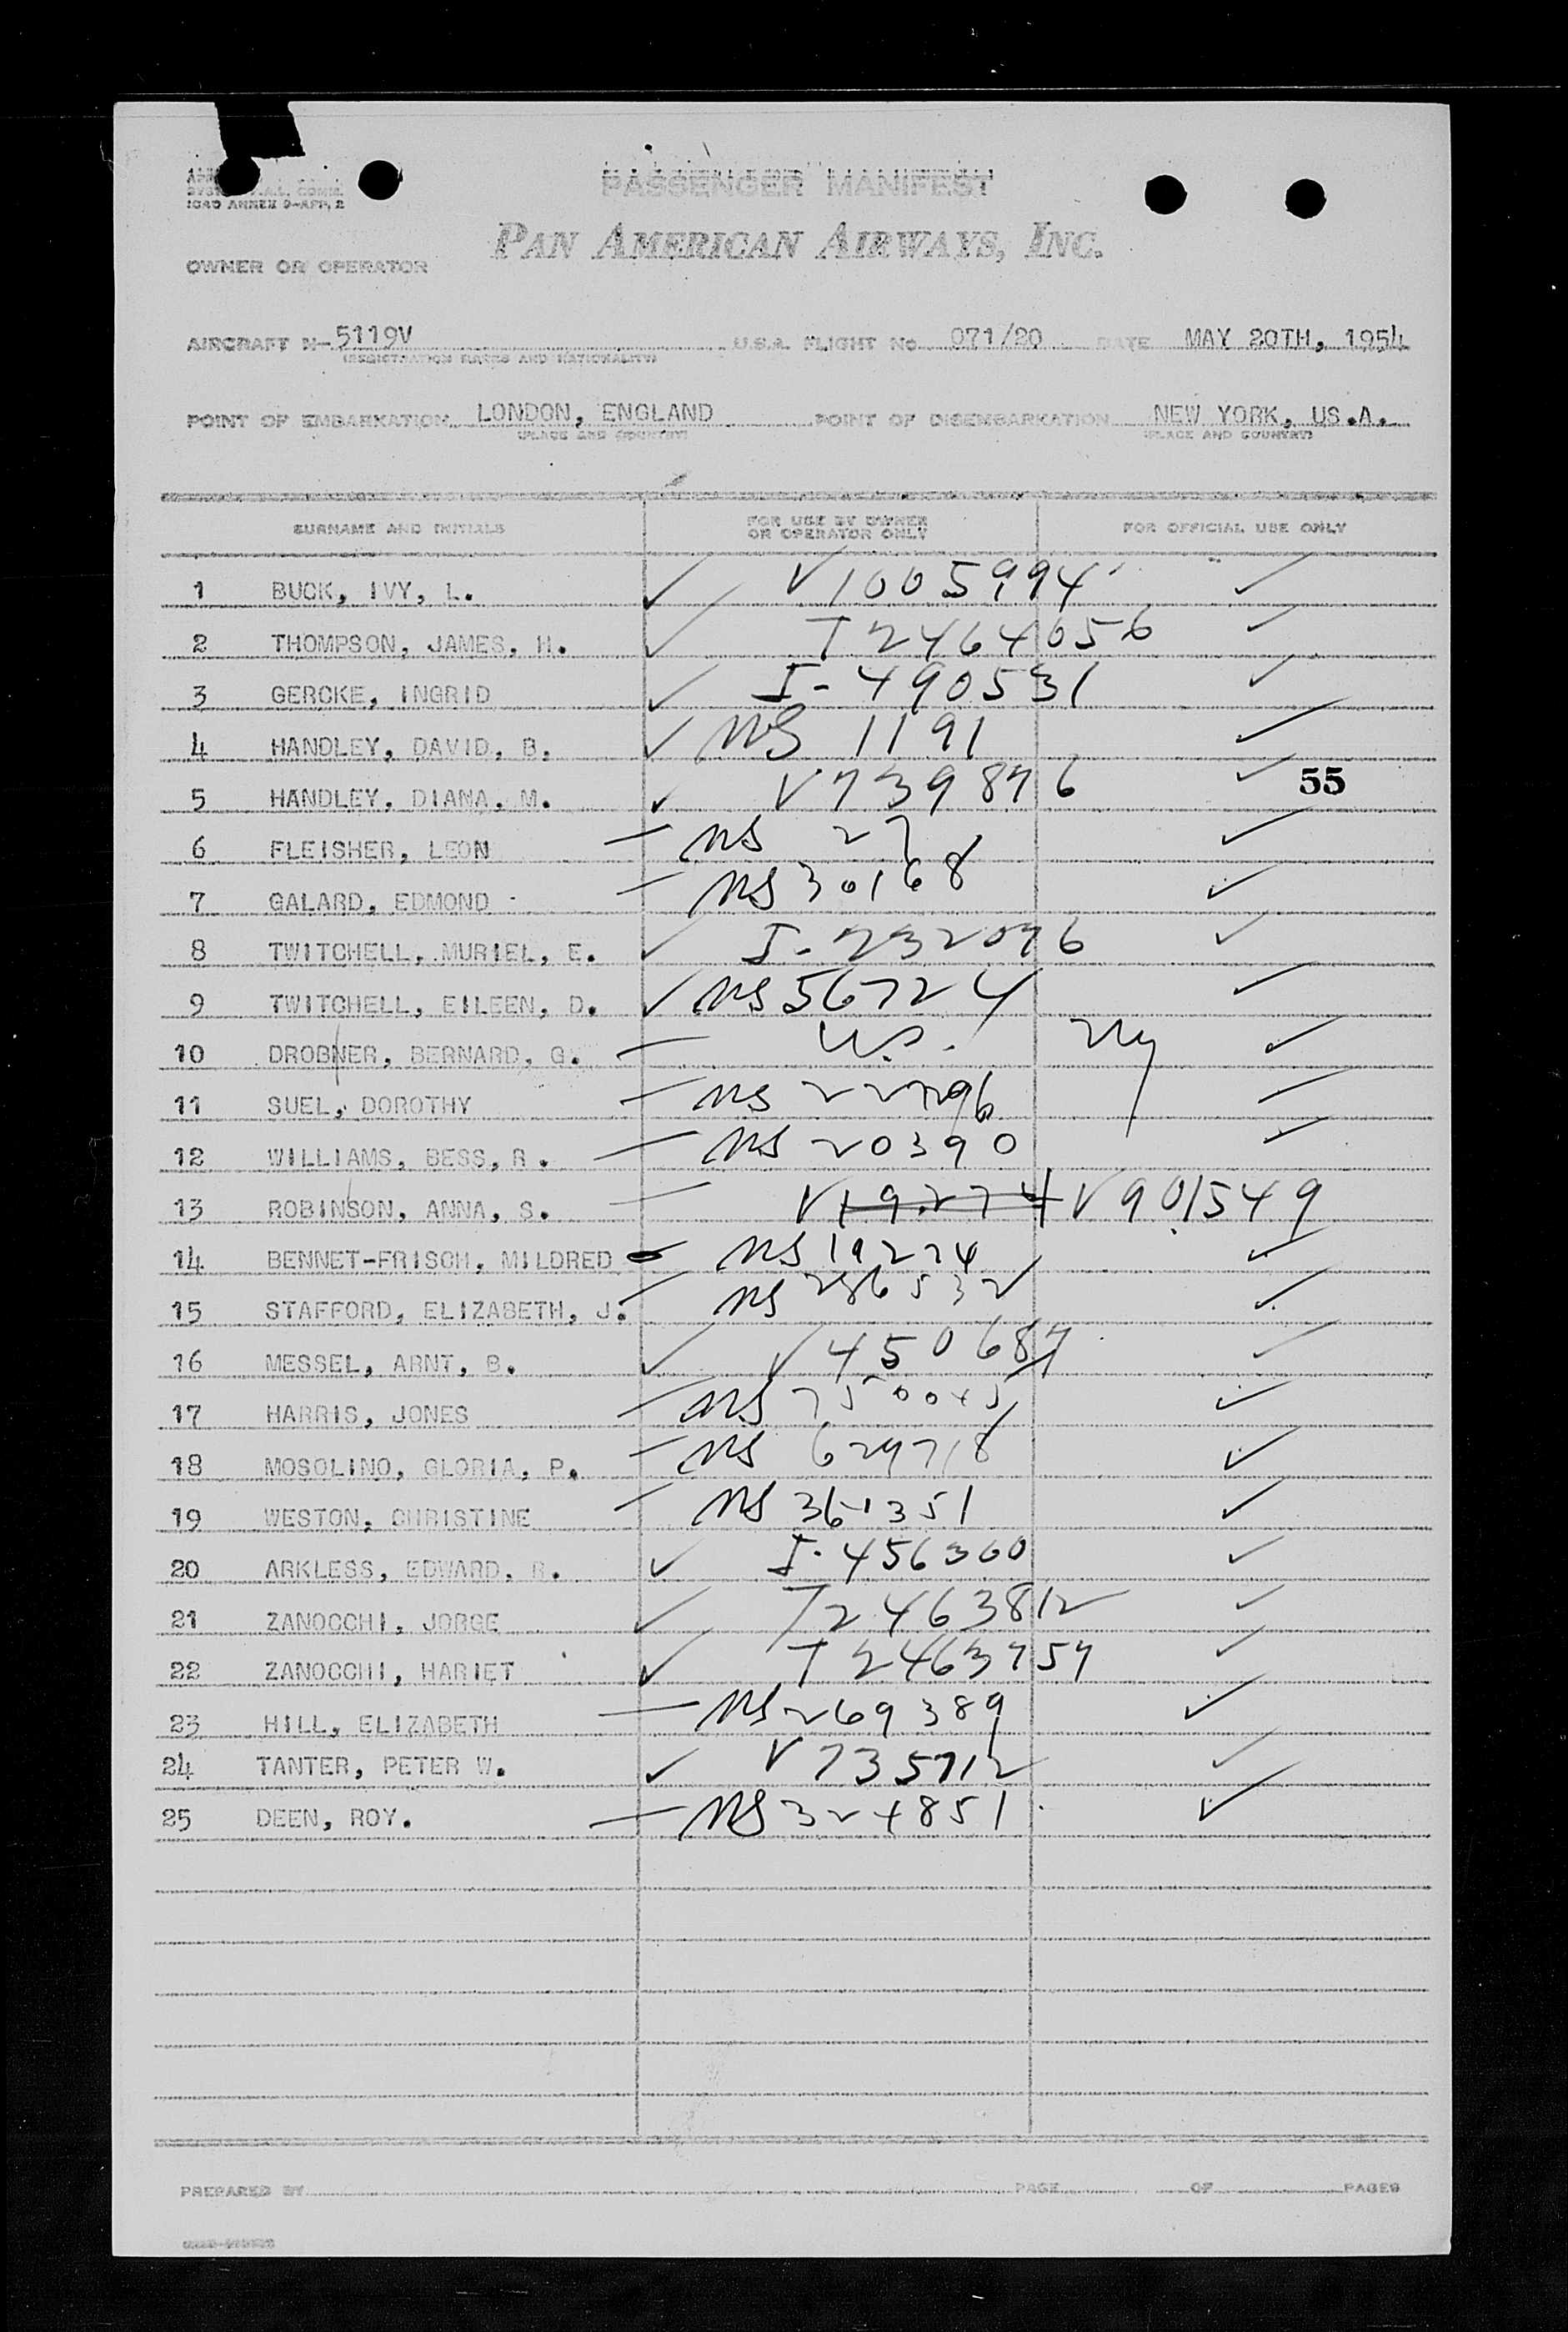 PASSENGER MANIFEST
ICAO ANNEX 9-APP. 2
PAN AMERICAN AIRWAYS, INC.
OWNER OR OPERATOR
AIRCRAFT N-5119V U.S.A. FLIGHT No 071/20 DATE MAY 20TH, 1954
(REGISTRATION MARKS AND NATIONALITY)
POINT OF EMBARKATION LONDON, ENGLAND POINT OF DISEMBARKATION NEW YORK, US.A.
(PLACE AND COUNTRY) (PLACE AND COUNTRY)
SURNAME AND INITIALS FOR USE BY OWNER OR OPERATOR ONLY FOR OFFICIAL USE ONLY
1 BUCK, IVY, L. ✓ V1005994 ✓
2 THOMPSON, JAMES, H. ✓ T2464056 ✓
3 GERCKE, INGRID ✓ I-490531 ✓
4 HANDLEY, DAVID, B. ✓ NS 1191 ✓
5 HANDLEY, DIANA, M. ✓ V739876 ✓ 55
6 FLEISHER, LEON — NS 27 ✓
7 GALARD, EDMOND — NS 30168 ✓
8 TWITCHELL, MURIEL, E. ✓ I-232076 ✓
9 TWITCHELL, EILEEN, D. ✓ NS 56724 ✓
10 DROBNER, BERNARD, G. — U.S. ✓
11 SUEL, DOROTHY — NS ✓
12 WILLIAMS, BESS, R. — NS 20390 ✓
13 ROBINSON, ANNA, S. — V19274 V901549
14 BENNET-FRISCH, MILDRED — NS 19274 ✓
15 STAFFORD, ELIZABETH, J. — NS 286532 ✓
16 MESSEL, ARNT, B. ✓ V450687 ✓
17 HARRIS, JONES — NS ✓
18 MOSOLINO, GLORIA, P. — NS 629718 ✓
19 WESTON, CHRISTINE — NS 361351 ✓
20 ARKLESS, EDWARD, R. ✓ I-456360 ✓
21 ZANOCCHI, JORGE ✓ T2463812 ✓
22 ZANOCCHI, HARIET ✓ T2463757 ✓
23 HILL, ELIZABETH — NS 269389 ✓
24 TANTER, PETER W. ✓ V735712 ✓
25 DEEN, ROY. — NS 324851 ✓
PREPARED BY PAGE OF PAGES